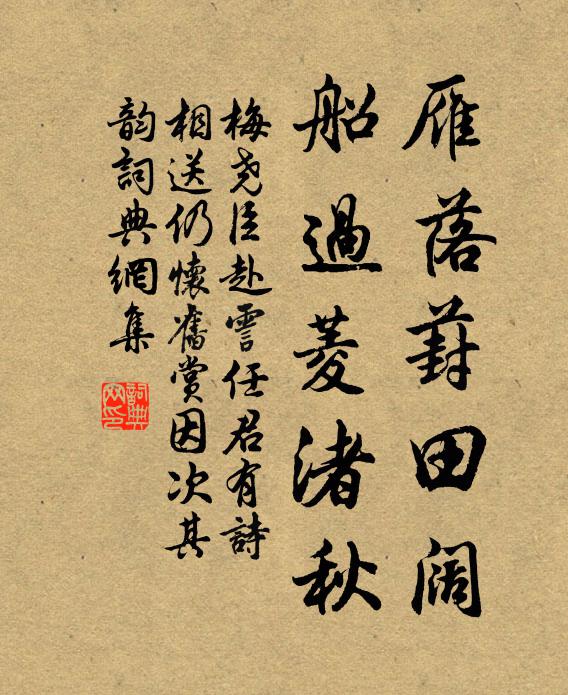 雁落葑田阔
船過菱渚秋
梅尧臣赴霅任君有詩
相送仍懷舊賞因次其
韵詞典網集
詞典
网印